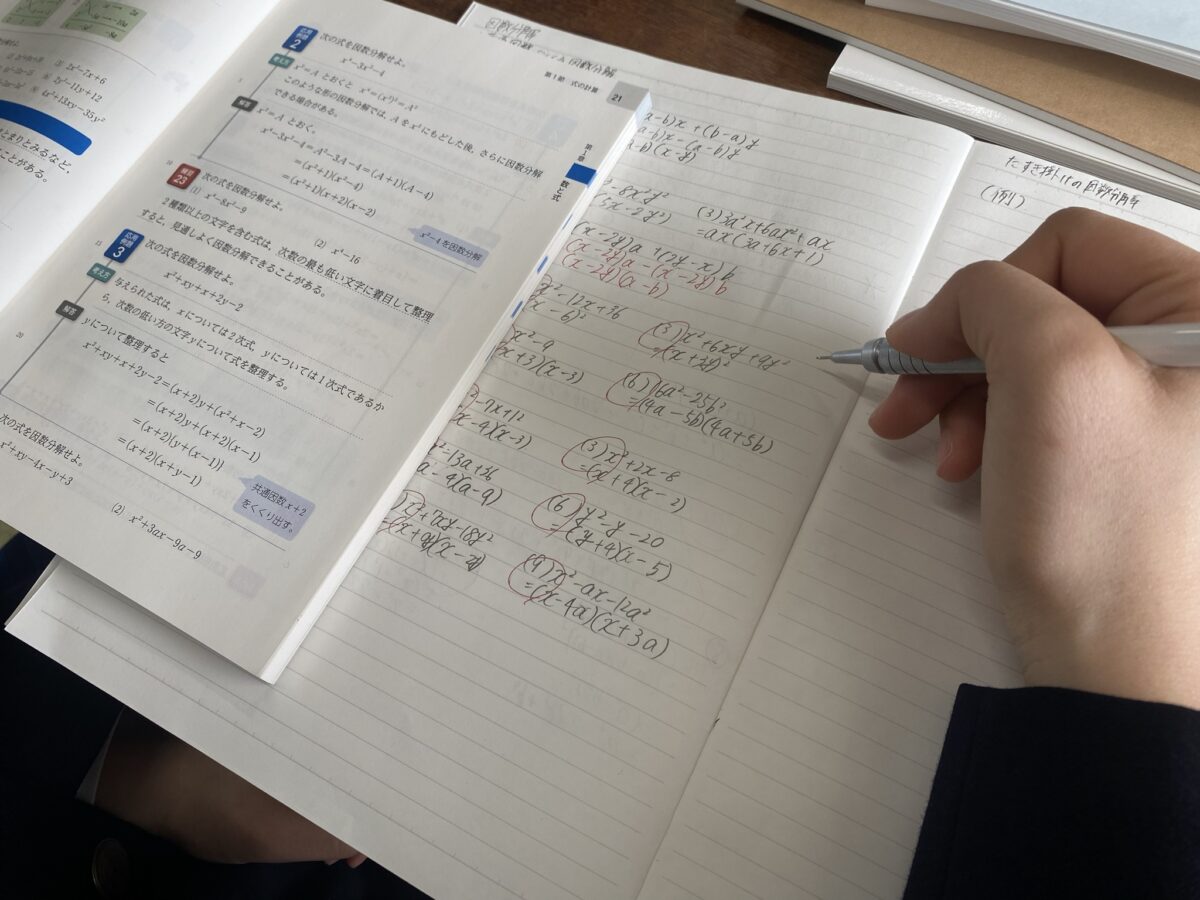 (3) 2x²-7x+6
(6) 2y²-11y+12
(9) 4x²+13xy-35y²
まとまりとみるなど，
ことがある。
第1節 式の計算 21
応用例題 2 次の式を因数分解せよ。
x⁴-3x²-4
考え方 x²=A とおくと x⁴=(x²)²=A²
このような形の因数分解では，A を x² にもどした後，さらに因数分解
できる場合がある。
解答 x²=A とおく。
x⁴-3x²-4=A²-3A-4=(A+1)(A-4)
=(x²+1)(x²-4)
=(x²+1)(x+2)(x-2)
x²-4を因数分解
練習 23 次の式を因数分解せよ。
(1) x⁴-8x²-9
(2) x⁴-16
2種類以上の文字を含む式は，次数の最も低い文字に着目して整理
すると，見通しよく因数分解できることがある。
応用例題 3 次の式を因数分解せよ。
x²+xy+x+2y-2
考え方 与えられた式は，x については2次式，y については1次式であるか
ら，次数の低い方の文字 y について式を整理する。
解答 y について整理すると
x²+xy+x+2y-2=(x+2)y+(x²+x-2)
=(x+2)y+(x+2)(x-1)
=(x+2){y+(x-1)}
=(x+2)(x+y-1)
共通因数 x+2
をくくり出す。
次の式を因数分解せよ。
x²+xy-4x-y+3
(2) x²+3ax-9a-9
第1章
数と式
因数分解
a-b)x+(b-a)y
a-b)x-(a-b)y
a-b)(x-y)
-8x²y²
(3) 3a²x+6ax²+ax
=ax(3a+6x+1)
(x-2y)a+(2y-x)b
(x-2y)a-(x-2y)b
(x-2y)(a-b)
-12x+36
x-6)²
(3) x²+6xy+9y²
=(x+3y)²
x²-9
x+3)(x-3)
(6) 16a²-25b²
=(4a-5b)(4a+5b)
-7x+12
x-4)(x-3)
(3) x²+2x-8
=(x+4)(x-2)
-13a+36
a-4)(a-9)
(6) y²-y-20
=(y+4)(x-5)
x²+7xy-18y²
(x+9y)(x-2y)
(9) x²-ax-12a²
=(x-4a)(x+3a)
たすき掛けの因数分解
(例)